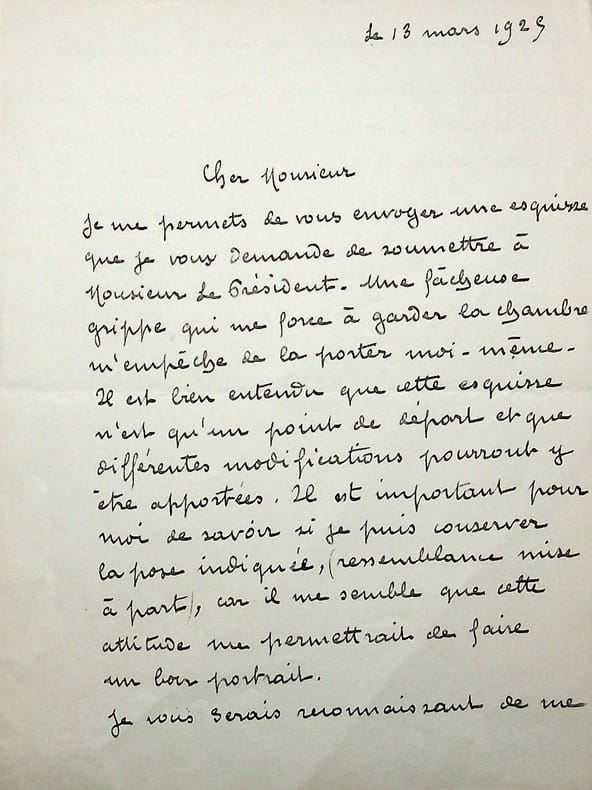 le 13 mars 1929
Cher Monsieur
Je me permets de vous envoyer une esquisse
que je vous demande de soumettre à
Monsieur le Président. Une fâcheuse
grippe qui me force à garder la chambre
m'empêche de la porter moi-même.
Il est bien entendu que cette esquisse
n'est qu'un point de départ et que
différentes modifications pourront y
être apportées. Il est important pour
moi de savoir si je puis conserver
la pose indiquée, (ressemblance mise
à part), car il me semble que cette
attitude me permettrait de faire
un bon portrait.
Je vous serais reconnaissant de me